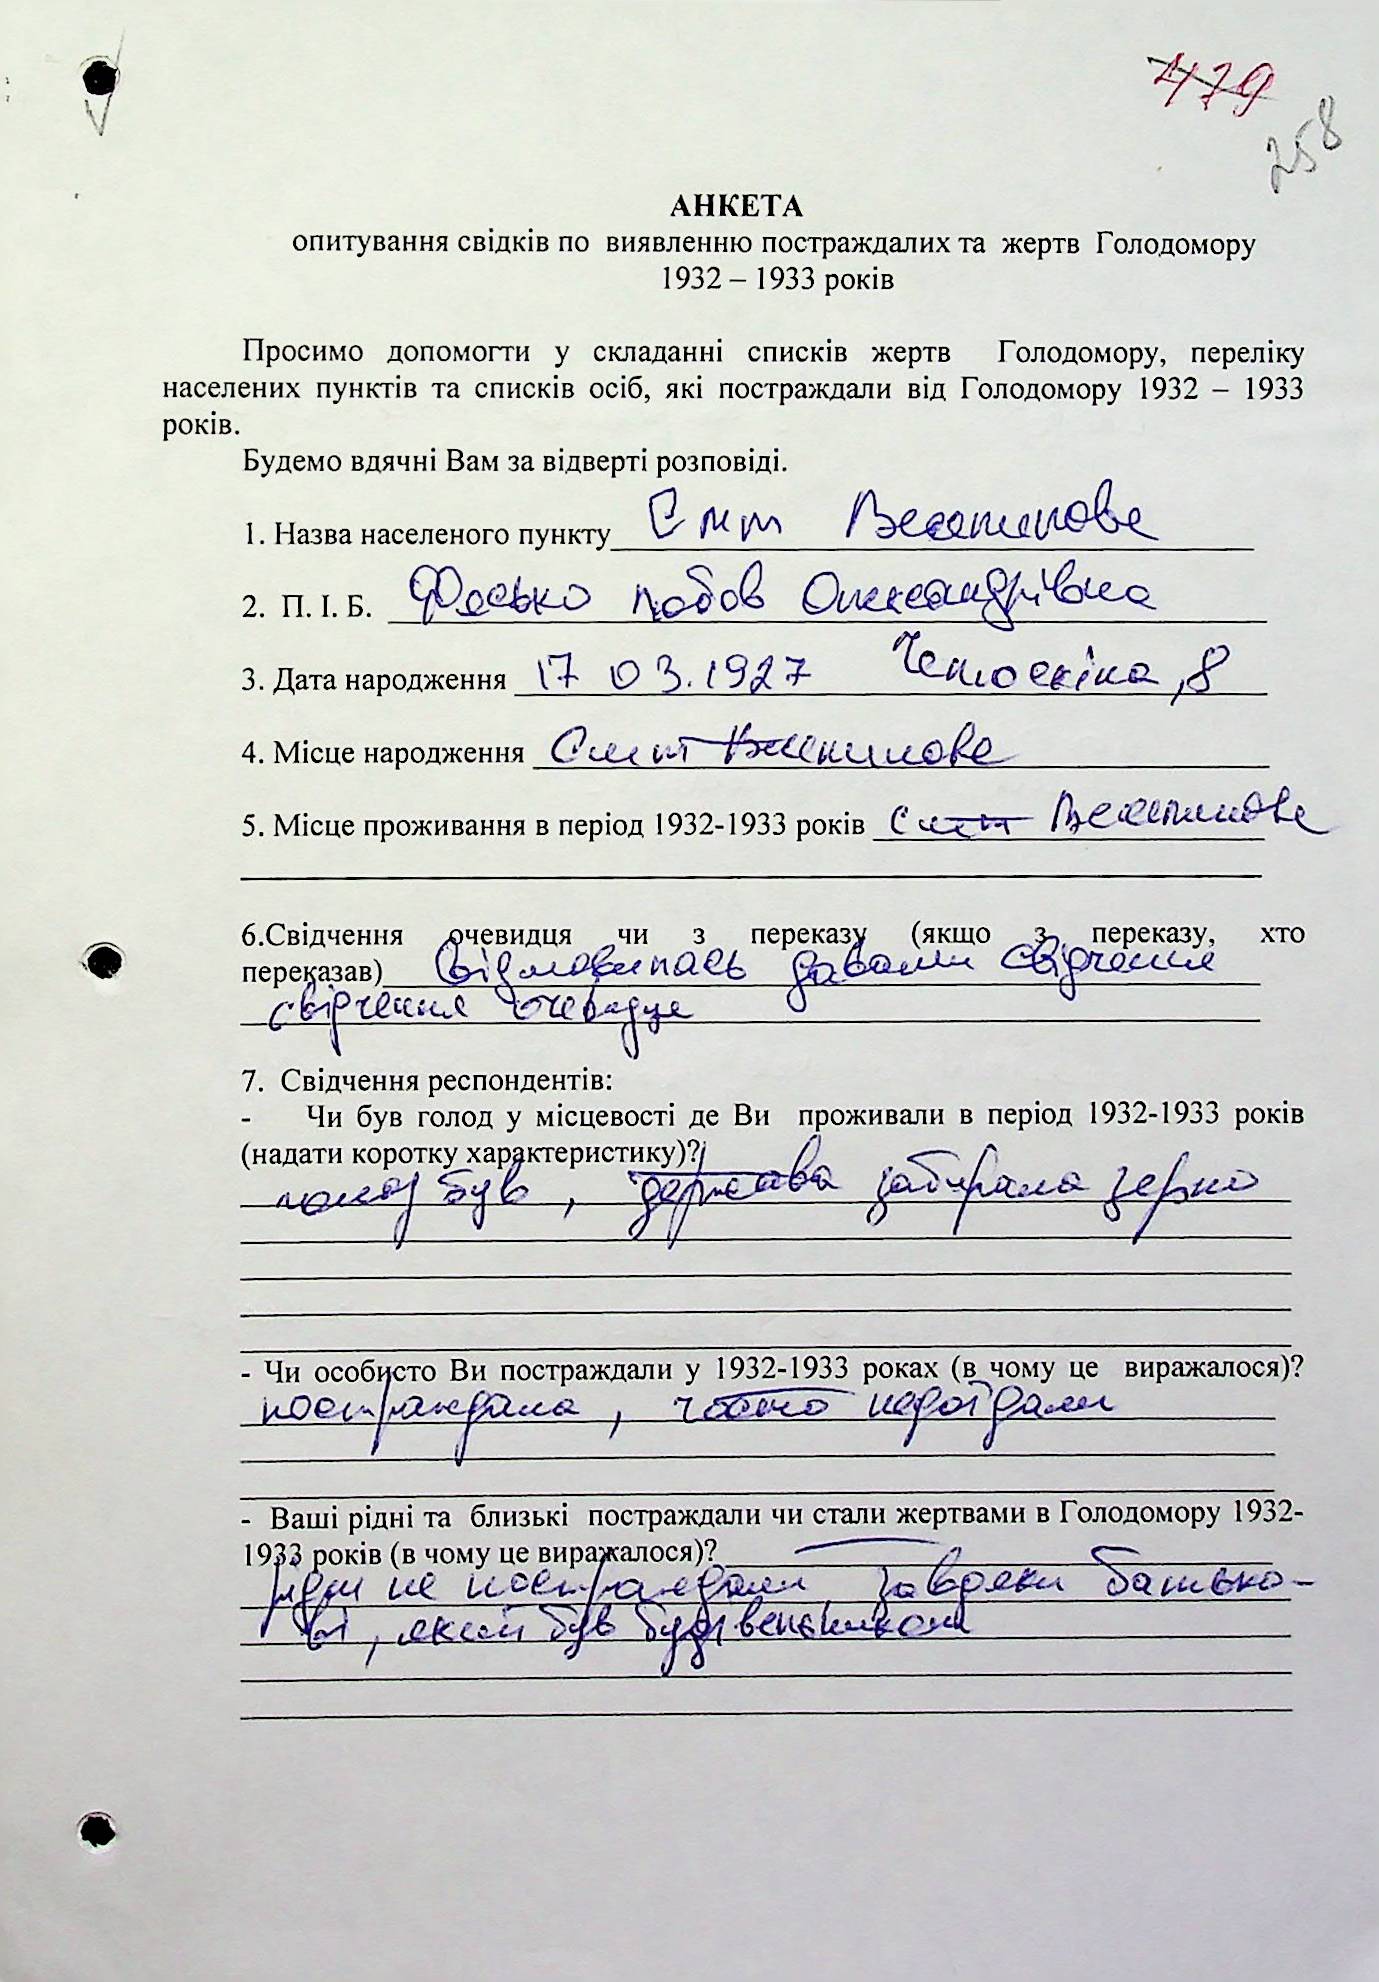 479
258
АНКЕТА
опитування свідків по виявленню постраждалих та жертв Голодомору
1932 – 1933 років
Просимо допомогти у складанні списків жертв Голодомору, переліку
населених пунктів та списків осіб, які постраждали від Голодомору 1932 – 1933
років.
Будемо вдячні Вам за відверті розповіді.
1. Назва населеного пункту смт Веселинове
2. П. І. Б. Олександрівна
3. Дата народження 17 03.1927 Челюскіна, 8
4. Місце народження смт Веселинове
5. Місце проживання в період 1932-1933 років смт Веселинове
6.Свідчення очевидця чи з переказу (якщо з переказу, хто
переказав) відмовилась давати свідчення
свідчення очевидця
7. Свідчення респондентів:
- Чи був голод у місцевості де Ви проживали в період 1932-1933 років
(надати коротку характеристику)?
голод був, держава забирала зерно
- Чи особисто Ви постраждали у 1932-1933 роках (в чому це виражалося)?
постраждала, часто недоїдали
- Ваші рідні та близькі постраждали чи стали жертвами в Голодомору 1932-
1933 років (в чому це виражалося)?
рідні не постраждали завдяки батько-
ві, який був будівельником